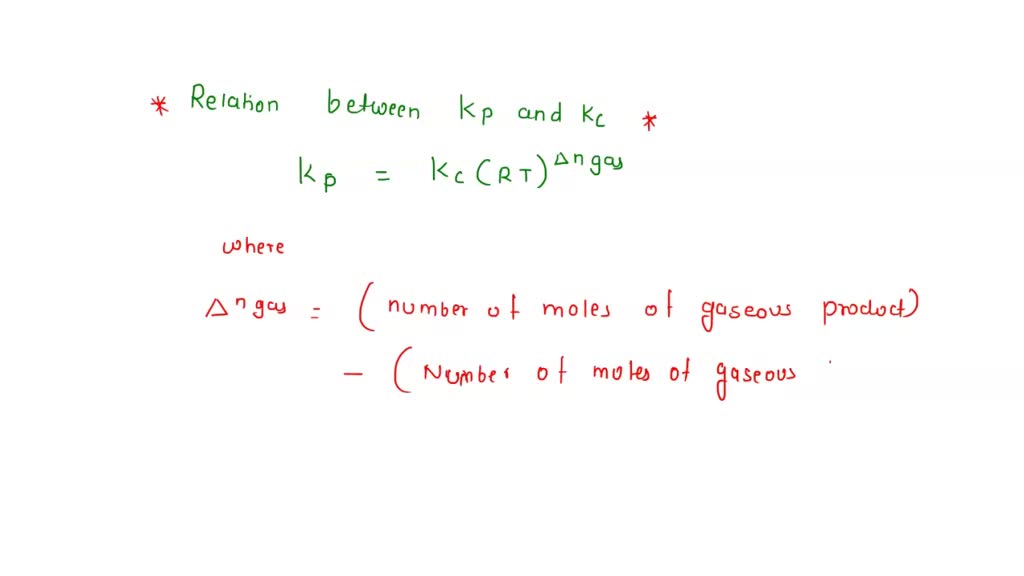 * Relation between Kp and Kc *
Kp = Kc (RT)^Δn gas
where
Δn gas = (number of moles of gaseous product)
- (Number of moles of gaseous